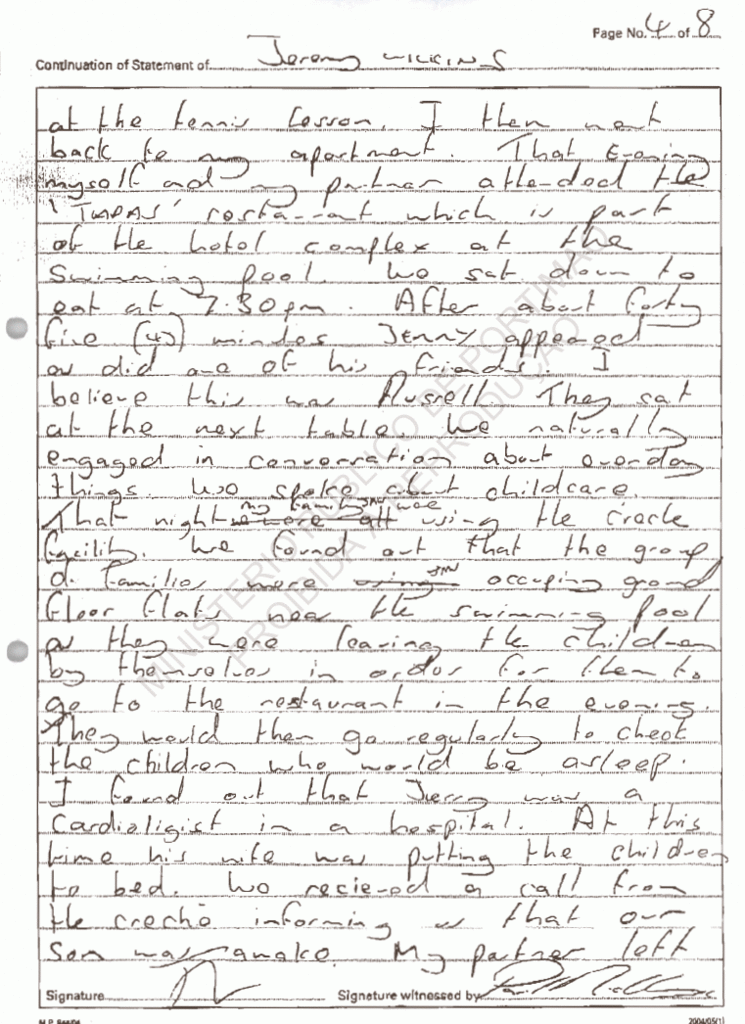 Page No. 4 of 8
Continuation of Statement of Jeremy WILKINS
at the tennis lesson. I then went
back to my apartment. That Evening
myself and my partner attended the
'TAPAS' restaurant which is part
of the hotel complex at the
Swimming pool. We sat down to
eat at 7.30pm. After about forty
five (45) minutes JERRY appeared
as did one of his friends. I
believe this was Russell. They sat
at the next table. We naturally
engaged in conversation about everyday
things. We spoke about childcare.
That night my family JMW were using the creche
facility. We found out that the group
of families were JMW occuping ground
floor flats near the swimming pool
as they were leaving the children
by themselves in order for them to
go to the restaurant in the evening.
They would then go regularly to check
the children who would be asleep.
I found out that Jerry was a
Cardioligist in a hospital. At this
time his wife was putting the children
to bed. We recieved a call from
the creche informing us that our
Son was awake. My partner left
Signature Signature witnessed by
2004/05(1)
MINISTERIO PUBLICO DE PORTIMAO
PROIBIDA A REPRODUÇÃO